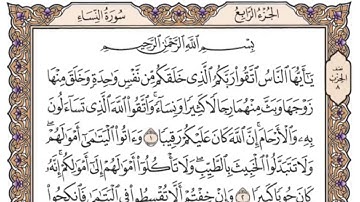 سُورَةُ النِّسَاءِ الجُزْءُ الرَّابِعُ
بِسْمِ اللَّهِ الرَّحْمَٰنِ الرَّحِيمِ
يَا أَيُّهَا النَّاسُ اتَّقُوا رَبَّكُمُ الَّذِي خَلَقَكُم مِّن نَّفْسٍ وَٰحِدَةٍ وَخَلَقَ مِنْهَا
زَوْجَهَا وَبَثَّ مِنْهُمَا رِجَالًا كَثِيرًا وَنِسَاءً ۚ وَاتَّقُوا اللَّهَ الَّذِي تَسَاءَلُونَ
بِهِ وَالْأَرْحَامَ ۚ إِنَّ اللَّهَ كَانَ عَلَيْكُمْ رَقِيبًا ١ وَءَاتُوا الْيَتَٰمَىٰ أَمْوَٰلَهُمْ ۖ
وَلَا تَتَبَدَّلُوا الْخَبِيثَ بِالطَّيِّبِ ۖ وَلَا تَأْكُلُوا أَمْوَٰلَهُمْ إِلَىٰ أَمْوَٰلِكُمْ ۚ إِنَّهُ
كَانَ حُوبًا كَبِيرًا ٢ وَإِنْ خِفْتُمْ أَلَّا تُقْسِطُوا فِي الْيَتَٰمَىٰ فَانكِحُوا
الحزب
٨